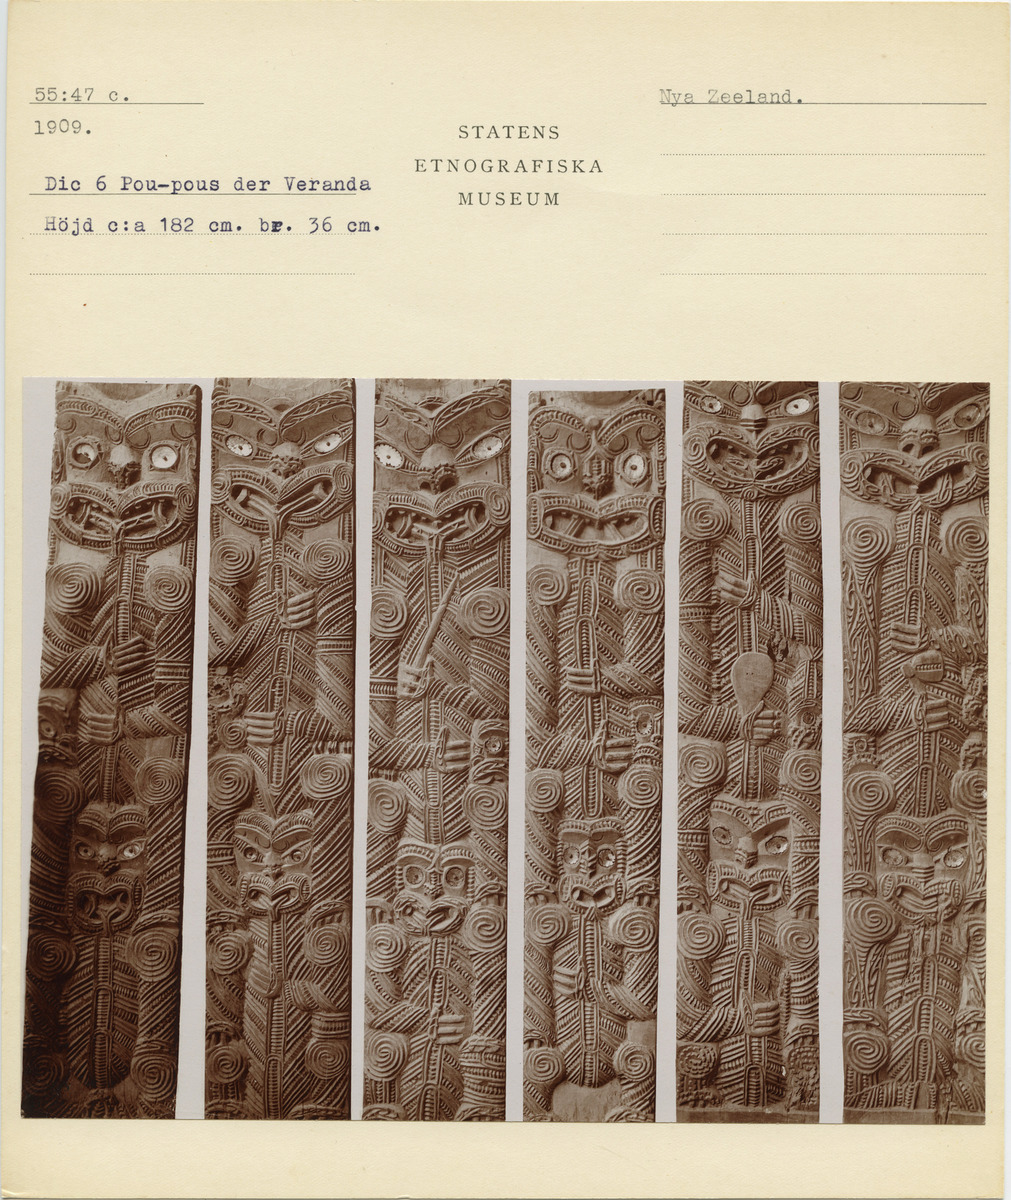 55:47 c.
1909.
Dic 6 Pou-pous der Veranda
Höjd c:a 182 cm. br. 36 cm.
STATENS
ETNOGRAFISKA
MUSEUM
Nya Zeeland.